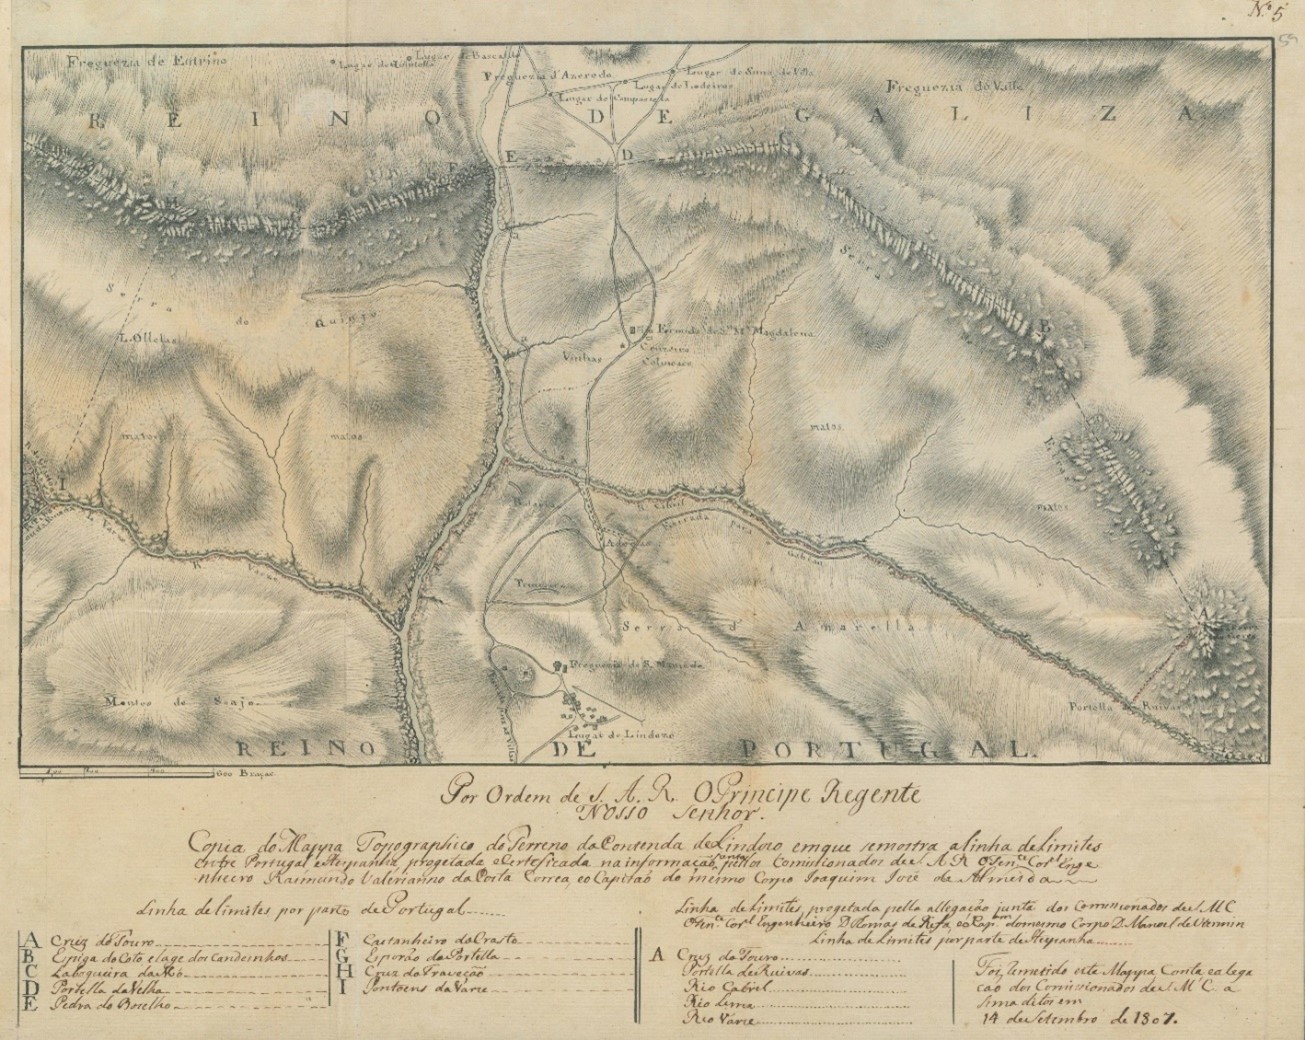 Nº 5
59
Freguezia de Entrino
Lugar de Barcella
Lugar de Quintella
Freguezia d'Azeredo
Lugar de
Lugar de Ludeiros
Lugar de Compostela
Freguezia do Valle
REINO DE GALIZA
F E D C
H G
Serra
Serra do Quinjo
L. Ollelas
Ermida de Sta Ma Magdalena
Cruzeiro
Colmeaes
Vinhas
B
matos
matos
matos
matos
I
R. Varze
R. Varze
R. Cabril
Estrada para
A
Serra d' Amarella
Montes de Soajo
Freguezia de S. Mamede
Portella de Ruivas
Lugar de Lindozo
REINO DE PORTUGAL.
600 Braças
Por Ordem de S. A. R. O Principe Regente
Nosso Senhor.
Copia do Mappa Topographico do Terreno da Contenda de Lindozo em que se mostra a linha de Limites
entre Portugal e Hespanha progetada e Certoficada na informação junta pellos Comissionados de S A R O Ten.te Cor.l Enge
nheiro Raimundo Valerianno da Costa Correa, e o Capitaõ do mesmo Corpo Joaquim Joze de Almeida
Linha de limites por parte de Portugal
A Cruz do Touro
B Espiga do Coto e lage dos Candeinhos
C
D Portella da Velha
E Pedra do Bozelho
F Castanheiro do Crasto
G Esporão da Portella
H Cruz do Traveção
I Pontoens da Varze
Linha de Limites progetada pella allegação junta dos Comissionados de S. M C
O Ten.te Cor.l Engenheiro D. Tomas de e o Cap.am do mesmo Corpo D. Manoel de
Linha de Limites por parte de Hespanha
A Cruz do Touro
Portella de Ruivas
Rio Cabrel
Rio Lima
Rio Varze
Foi remetido este Mappa Com a alega
cão dos Comissionados de S. M C. a
sima ditos em
14 de Setembro de 1807.